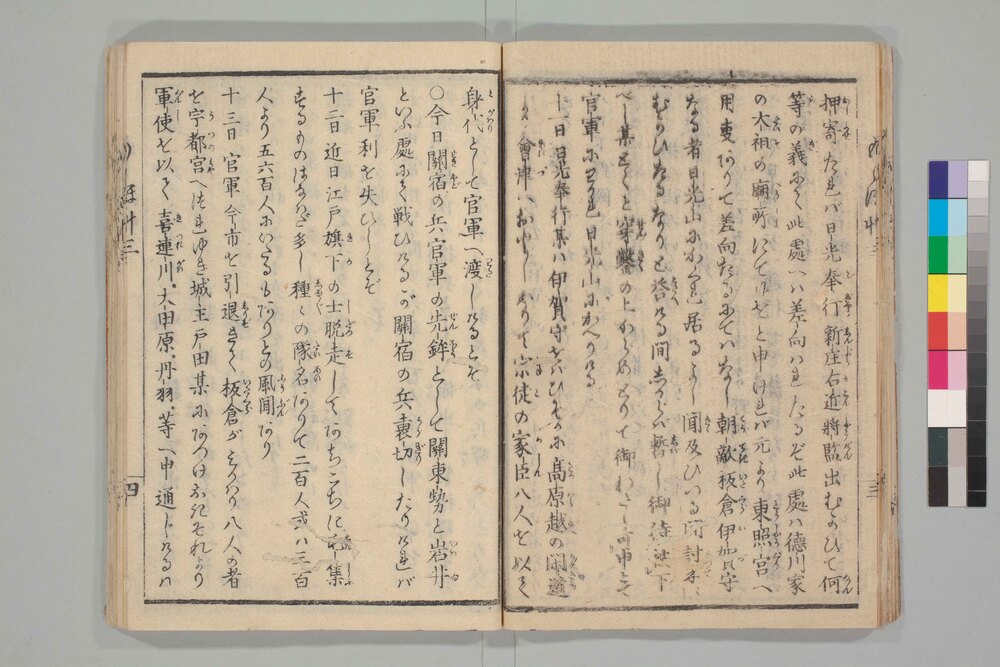 押寄たれバ日光奉行新庄右近將監出むかひて何
等の義にて此處へハ差向ハれたるぞ此處ハ德川家
の大祖の廟所にて候ぞと申けれバ元より東照宮へ
用事ありて差向たるにハなし朝敵板倉伊賀守
なる者日光山にかくれ居るよし聞及びいる間討手に
むかひたるなりと答ける間しからバ暫し御待
べし某とくと穿鑿の上からめとりて御わたし可申とて
官軍にわかれ日光山にかへりける
十二日日光奉行某ハ伊賀守をバひそかに高原越の間道
より會津へおとしやりて宗徒の家臣八人を以て
身代として官軍へ渡しけるとぞ
○今日關宿の兵官軍の先鋒として關東勢と岩井
といふ處にて戰ひけるが關宿の兵裏切したりけれバ
官軍利を失ひしとぞ
十二日近日江戸旗下の士脱走してあちこちに集
するものはなハだ多し種々の隊名ありて二百人或ハ三百
人より五六百人にいたるもありとの風聞あり
十三日官軍今市を引退きて板倉がみがハり八人の者
を宇都宮へつれゆき城主戸田某にあづけおきそれより
軍使を以て喜連川。大田原。丹羽。等へ申通じけるハ
四